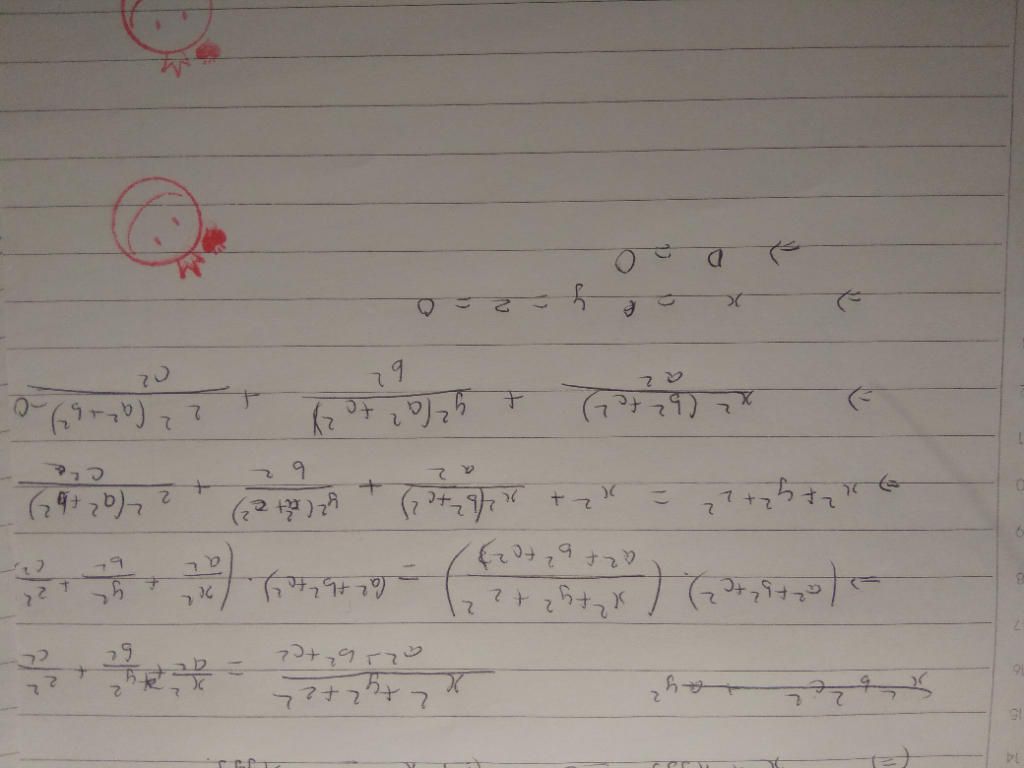 (x²+y²+z²)/(a²+b²+c²) = x²/a² + y²/b² + z²/c²
=> (a²+b²+c²) . ((x²+y²+z²)/(a²+b²+c²)) = (a²+b²+c²) . (x²/a² + y²/b² + z²/c²
=> x²+y²+z² = x² + x²(b²+c²)/a² + y²(a²+c²)/b² + z²(a²+b²)/c²
=> x²(b²+c²)/a² + y²(a²+c²)/b² + z²(a²+b²)/c² = 0
=> x = y = z = 0
=> 0 = 0